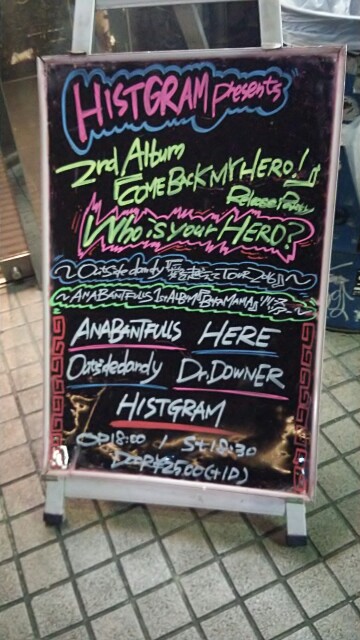 HISTGRAM presents
2nd Album
『COME BACK MY HERO!』
Release Party
Who is your HERO?
～Outsidedandy『 TOUR 2016』～
～ANABANTFULLS 1st ALBUM『BAKAMAMA』リリースツアー～
ANABANTFULLS HERE
Outsidedandy Dr.DOWNER
HISTGRAM
OP18:00 / St18:30
DOOR¥2500(+1D)